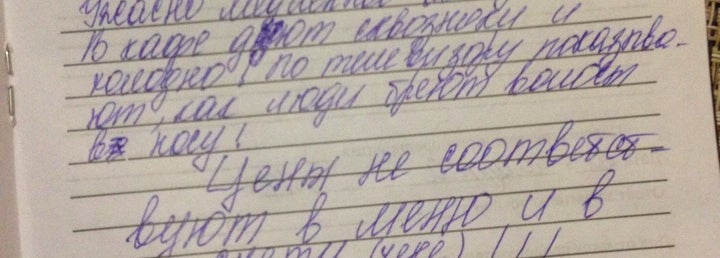 Ужасно медленное
В кафе дуют сквозняки и
холодно! по телевизору показыва-
ют, как люди бреют волосы
в носу!
Цены не соответст-
вуют в меню и в
счёте (чеке)!!!